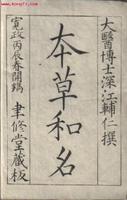 大醫博士深江輔仁撰
本草和名
寛政丙辰春開雕 聿修堂藏板
www.kongfz.com